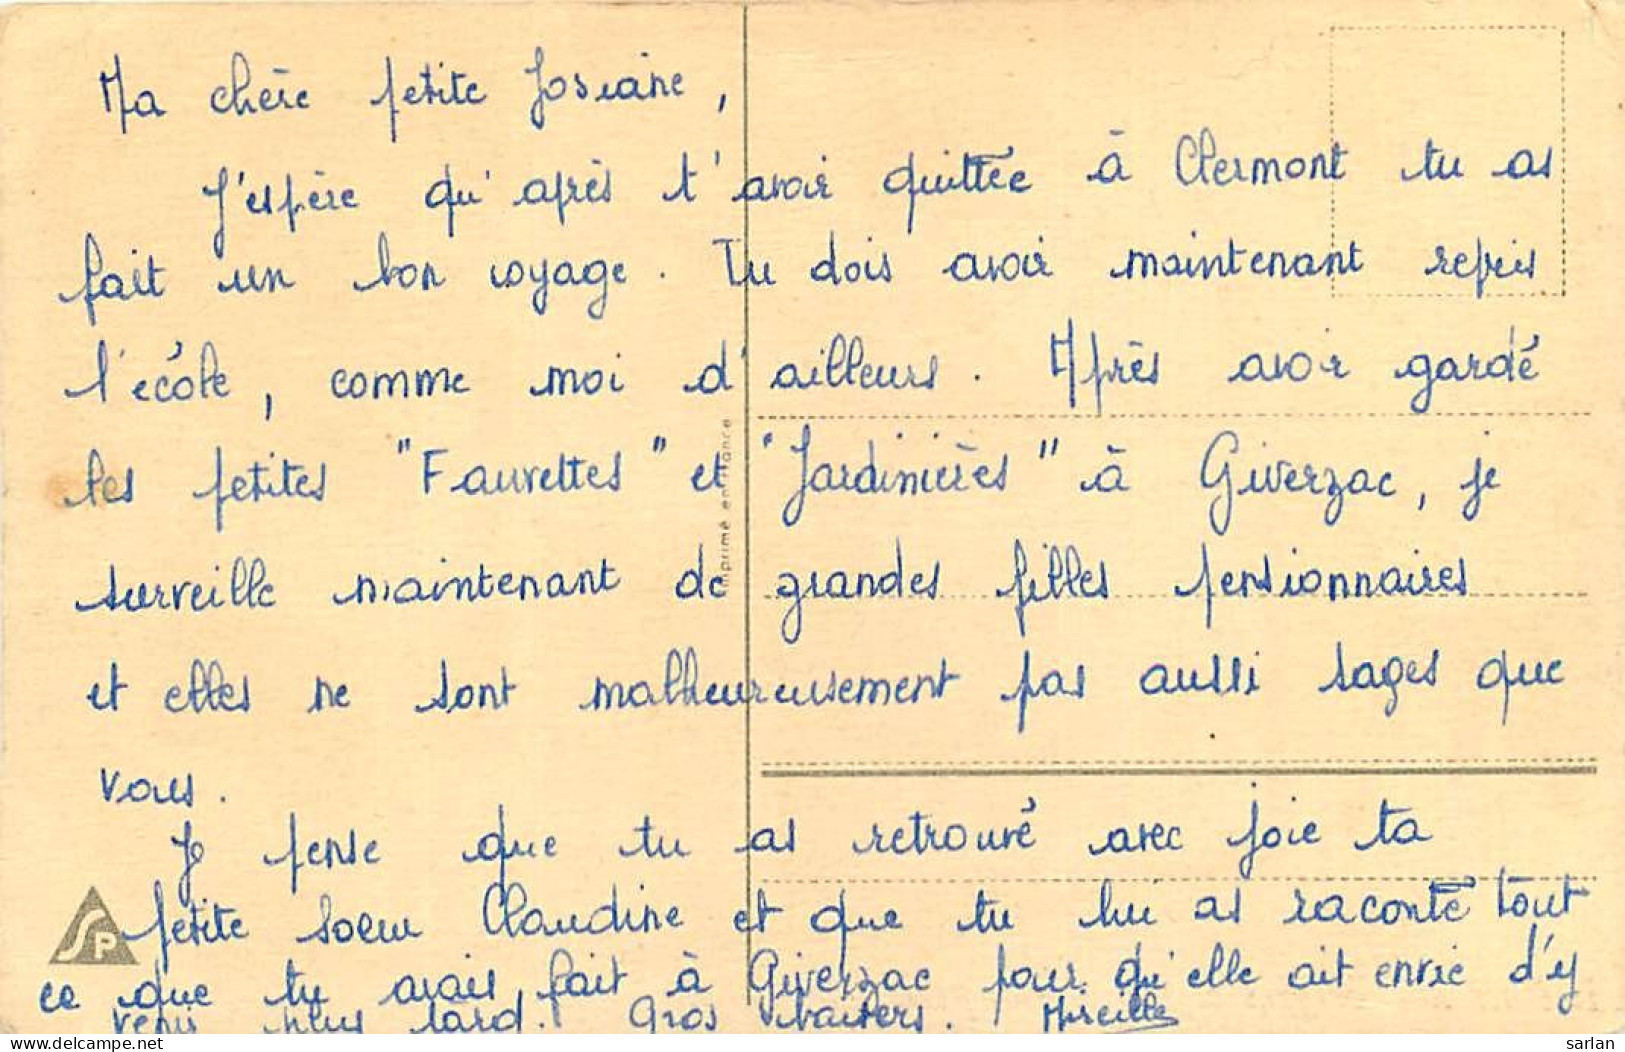 Ma chère petite Josiane,
J'espère qu'après t'avoir quittée à Clermont tu as
fait un bon voyage. Tu dois avoir maintenant repris
l'école, comme moi d'ailleurs. Après avoir gardé
les petites "Fauvettes" et "Jardinières" à Giverzac, je
surveille maintenant de grandes filles pensionnaires
et elles ne sont malheureusement pas aussi sages que
vous.
Je pense que tu as retrouvé avec joie ta
petite soeur Claudine et que tu lui as raconté tout
ce que tu avais fait à Giverzac pour qu'elle ait envie d'y
venir plus tard. Gros baisers. Mireille
Imprimé en France
SP
©delcampe.net
sarlan